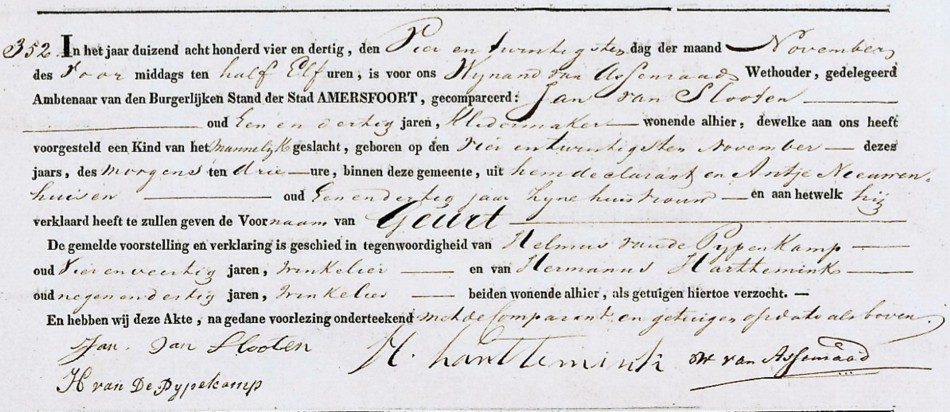 352 In het jaar duizend acht honderd vier en dertig, den Vier en twintigsten dag der maand November
des Voor middags ten half Elf uren, is voor ons Wynand van Assenraad Wethouder, gedelegeerd
Ambtenaar van den Burgerlijken Stand der Stad AMERSFOORT, gecompareerd: Jan van Slooten
oud Een en dertig jaren, Kledermaker wonende alhier, dewelke aan ons heeft
voorgesteld een Kind van het mannelyk geslacht, geboren op den Vier en twintigsten November dezes
jaars, des morgens ten drie ure, binnen deze gemeente, uit hem declarant en Antje Nieuwen-
huisen oud Een en dertig jaar zyne huisvrouw en aan hetwelk hij
verklaard heeft te zullen geven de Voornaam van Geurt
De gemelde voorstelling en verklaring is geschied in tegenwoordigheid van Helmus van de Pypenkamp
oud Vier en veertig jaren, winkelier en van Hermannus Harthemink
oud negen en dertig jaren, winkelier beiden wonende alhier, als getuigen hiertoe verzocht. —
En hebben wij deze Akte, na gedane voorlezing onderteekend met de Comparant en getuigen op dato als boven
Jan. Jan Slooten H. harttemink W van Assenraad
H van De Pypekamp